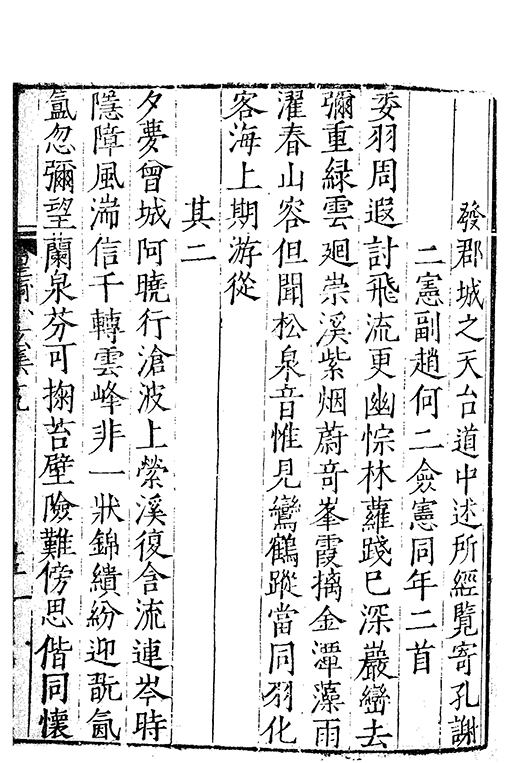 發郡城之天台道中述所經覽寄孔謝
二憲副趙何二僉憲同年二首
委羽周遐討飛流更幽悰林蘿踐已深巖巒去
彌重綠雲廻崇溪紫烟蔚竒峯霞摛金潭藻雨
濯春山容但聞松泉音惟見鸞鶴蹤當同羽化
客海上期游從
其二
夕夢曾城阿曉行滄波上縈溪復含流連岑時
隱障風湍信千轉雲峰非一狀錦繢紛迎翫氤
氳忽彌望蘭泉芬可掬苔壁險難傍思偕同懷